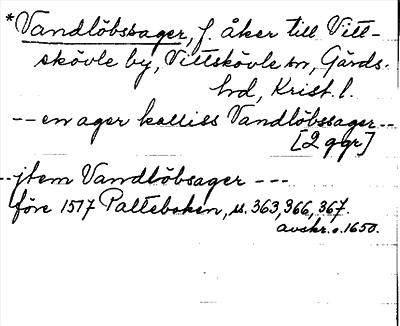 *Vandlöbssager, f. åker till Vitt-
skövle by, Vittskövle sn, Gärds.
hd, Krist. l.
-- en ager kalliss Vandlöbssager --
[2 ggr]
-- jtem Vandlöbsager ---
före 1517 Palteboken, s. 363, 366, 367.
avskr. o. 1650.